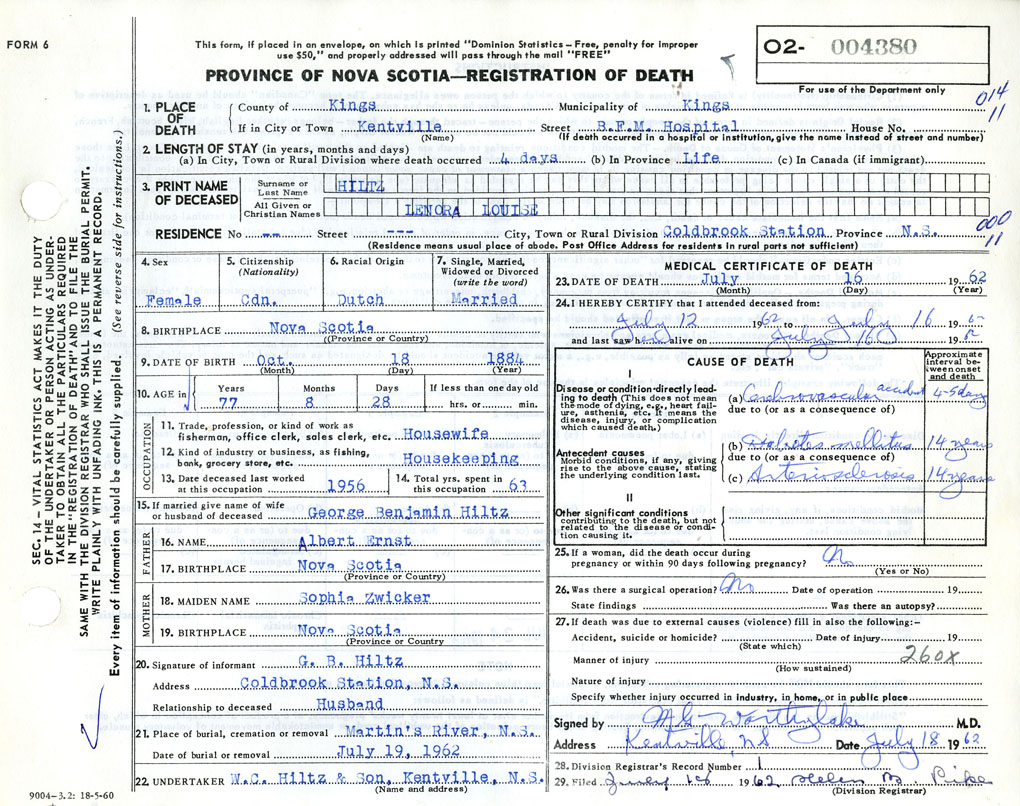 FORM 6
This form, if placed in an envelope, on which is printed "Dominion Statistics — Free, penalty for improper
use $50," and properly addressed will pass through the mail "FREE"
PROVINCE OF NOVA SCOTIA—REGISTRATION OF DEATH
O2- 004380
For use of the Department only
014
11
1. PLACE OF DEATH
County of Kings Municipality of Kings
If in City or Town Kentville Street B.F.M. Hospital House No.
(Name) (If death occurred in a hospital or institution, give the name instead of street and number)
2. LENGTH OF STAY (in years, months and days)
(a) In City, Town or Rural Division where death occurred 4 days (b) In Province Life (c) In Canada (if immigrant)
3. PRINT NAME OF DECEASED
Surname or Last Name HILTZ
All Given or Christian Names LENORA LOUISE
000
11
RESIDENCE No -- Street --- City, Town or Rural Division Coldbrook Station Province N.S.
(Residence means usual place of abode. Post Office Address for residents in rural parts not sufficient)
4. Sex
Female
5. Citizenship
(Nationality)
Cdn.
6. Racial Origin
Dutch
7. Single, Married,
Widowed or Divorced
(write the word)
Married
8. BIRTHPLACE Nova Scotia
(Province or Country)
9. DATE OF BIRTH Oct. 18 1884
(Month) (Day) (Year)
10. AGE in
Years Months Days If less than one day old
77 8 28 hrs. or min.
OCCUPATION
11. Trade, profession, or kind of work as
fisherman, office clerk, sales clerk, etc. Housewife
12. Kind of industry or business, as fishing,
bank, grocery store, etc. Housekeeping
13. Date deceased last worked
at this occupation 1956
14. Total yrs. spent in
this occupation 63
15. If married give name of wife
or husband of deceased George Benjamin Hiltz
FATHER
16. NAME Albert Ernst
17. BIRTHPLACE Nova Scotia
(Province or Country)
MOTHER
18. MAIDEN NAME Sophia Zwicker
19. BIRTHPLACE Nova Scotia
(Province or Country
20. Signature of informant G. B. Hiltz
Address Coldbrook Station, N.S.
Relationship to deceased Husband
21. Place of burial, cremation or removal Martin's River, N.S.
Date of burial or removal July 19, 1962
22. UNDERTAKER W.C. Hiltz & Son, Kentville, N.S.
(Name and address)
MEDICAL CERTIFICATE OF DEATH
23. DATE OF DEATH July 16 1962
(Month) (Day) (Year)
24. I HEREBY CERTIFY that I attended deceased from:
July 12 1962 to July 16 1962
and last saw h alive on July 16 19
CAUSE OF DEATH
Approximate
interval be-
tween onset
and death
I
Disease or condition directly lead-
ing to death (This does not mean
the mode of dying, e.g., heart fail-
ure, asthenia, etc. It means the
disease, injury, or complication
which caused death.)
(a) Cerebrovascular accident 4-5 days
due to (or as a consequence of)
Antecedent causes
Morbid conditions, if any, giving
rise to the above cause, stating
the underlying condition last.
(b) Diabetes mellitus 14 years
due to (or as a consequence of)
(c) Arteriosclerosis 14 years
II
Other significant conditions
contributing to the death, but not
related to the disease or condi-
tion causing it.
25. If a woman, did the death occur during
pregnancy or within 90 days following pregnancy? No
(Yes or No)
26. Was there a surgical operation? No Date of operation 19
State findings Was there an autopsy?
27. If death was due to external causes (violence) fill in also the following:—
Accident, suicide or homicide? Date of injury 19
(State which)
Manner of injury 260X
(How sustained)
Nature of injury
Specify whether injury occurred in industry, in home, or in public place
Signed by M G Worthylake M.D.
Address Kentville, NS Date July 18 1962
28. Division Registrar's Record Number 1
29. Filed 18 1962 Helen M. Pike
(Division Registrar)
SEC. 14 — VITAL STATISTICS ACT MAKES IT THE DUTY
OF THE UNDERTAKER OR PERSON ACTING AS UNDER-
TAKER TO OBTAIN ALL THE PARTICULARS REQUIRED
IN THE "REGISTRATION OF DEATH" AND TO FILE THE
SAME WITH THE DIVISION REGISTRAR WHO SHALL ISSUE THE BURIAL PERMIT.
WRITE PLAINLY WITH UNFADING INK. THIS IS A PERMANENT RECORD.
Every item of information should be carefully supplied. (See reverse side for instructions.)
9004-3.2: 18-5-60